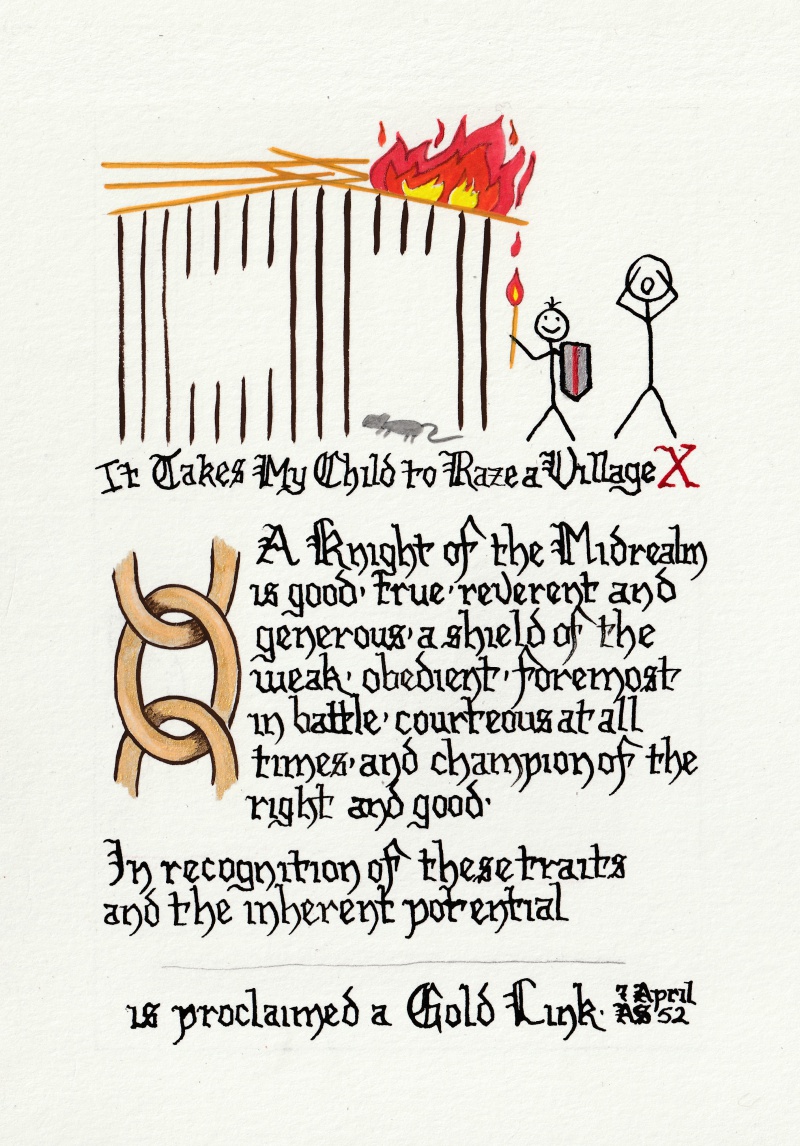 It Takes My Child to Raze a Village X
A Knight of the Midrealm
is good· true· reverent and
generous· a shield of the
weak· obedient· foremost
in battle· courteous at all
times· and champion of the
right and good·
In recognition of these traits
and the inherent potential
is proclaimed a Gold Link· 7 April
AS 52